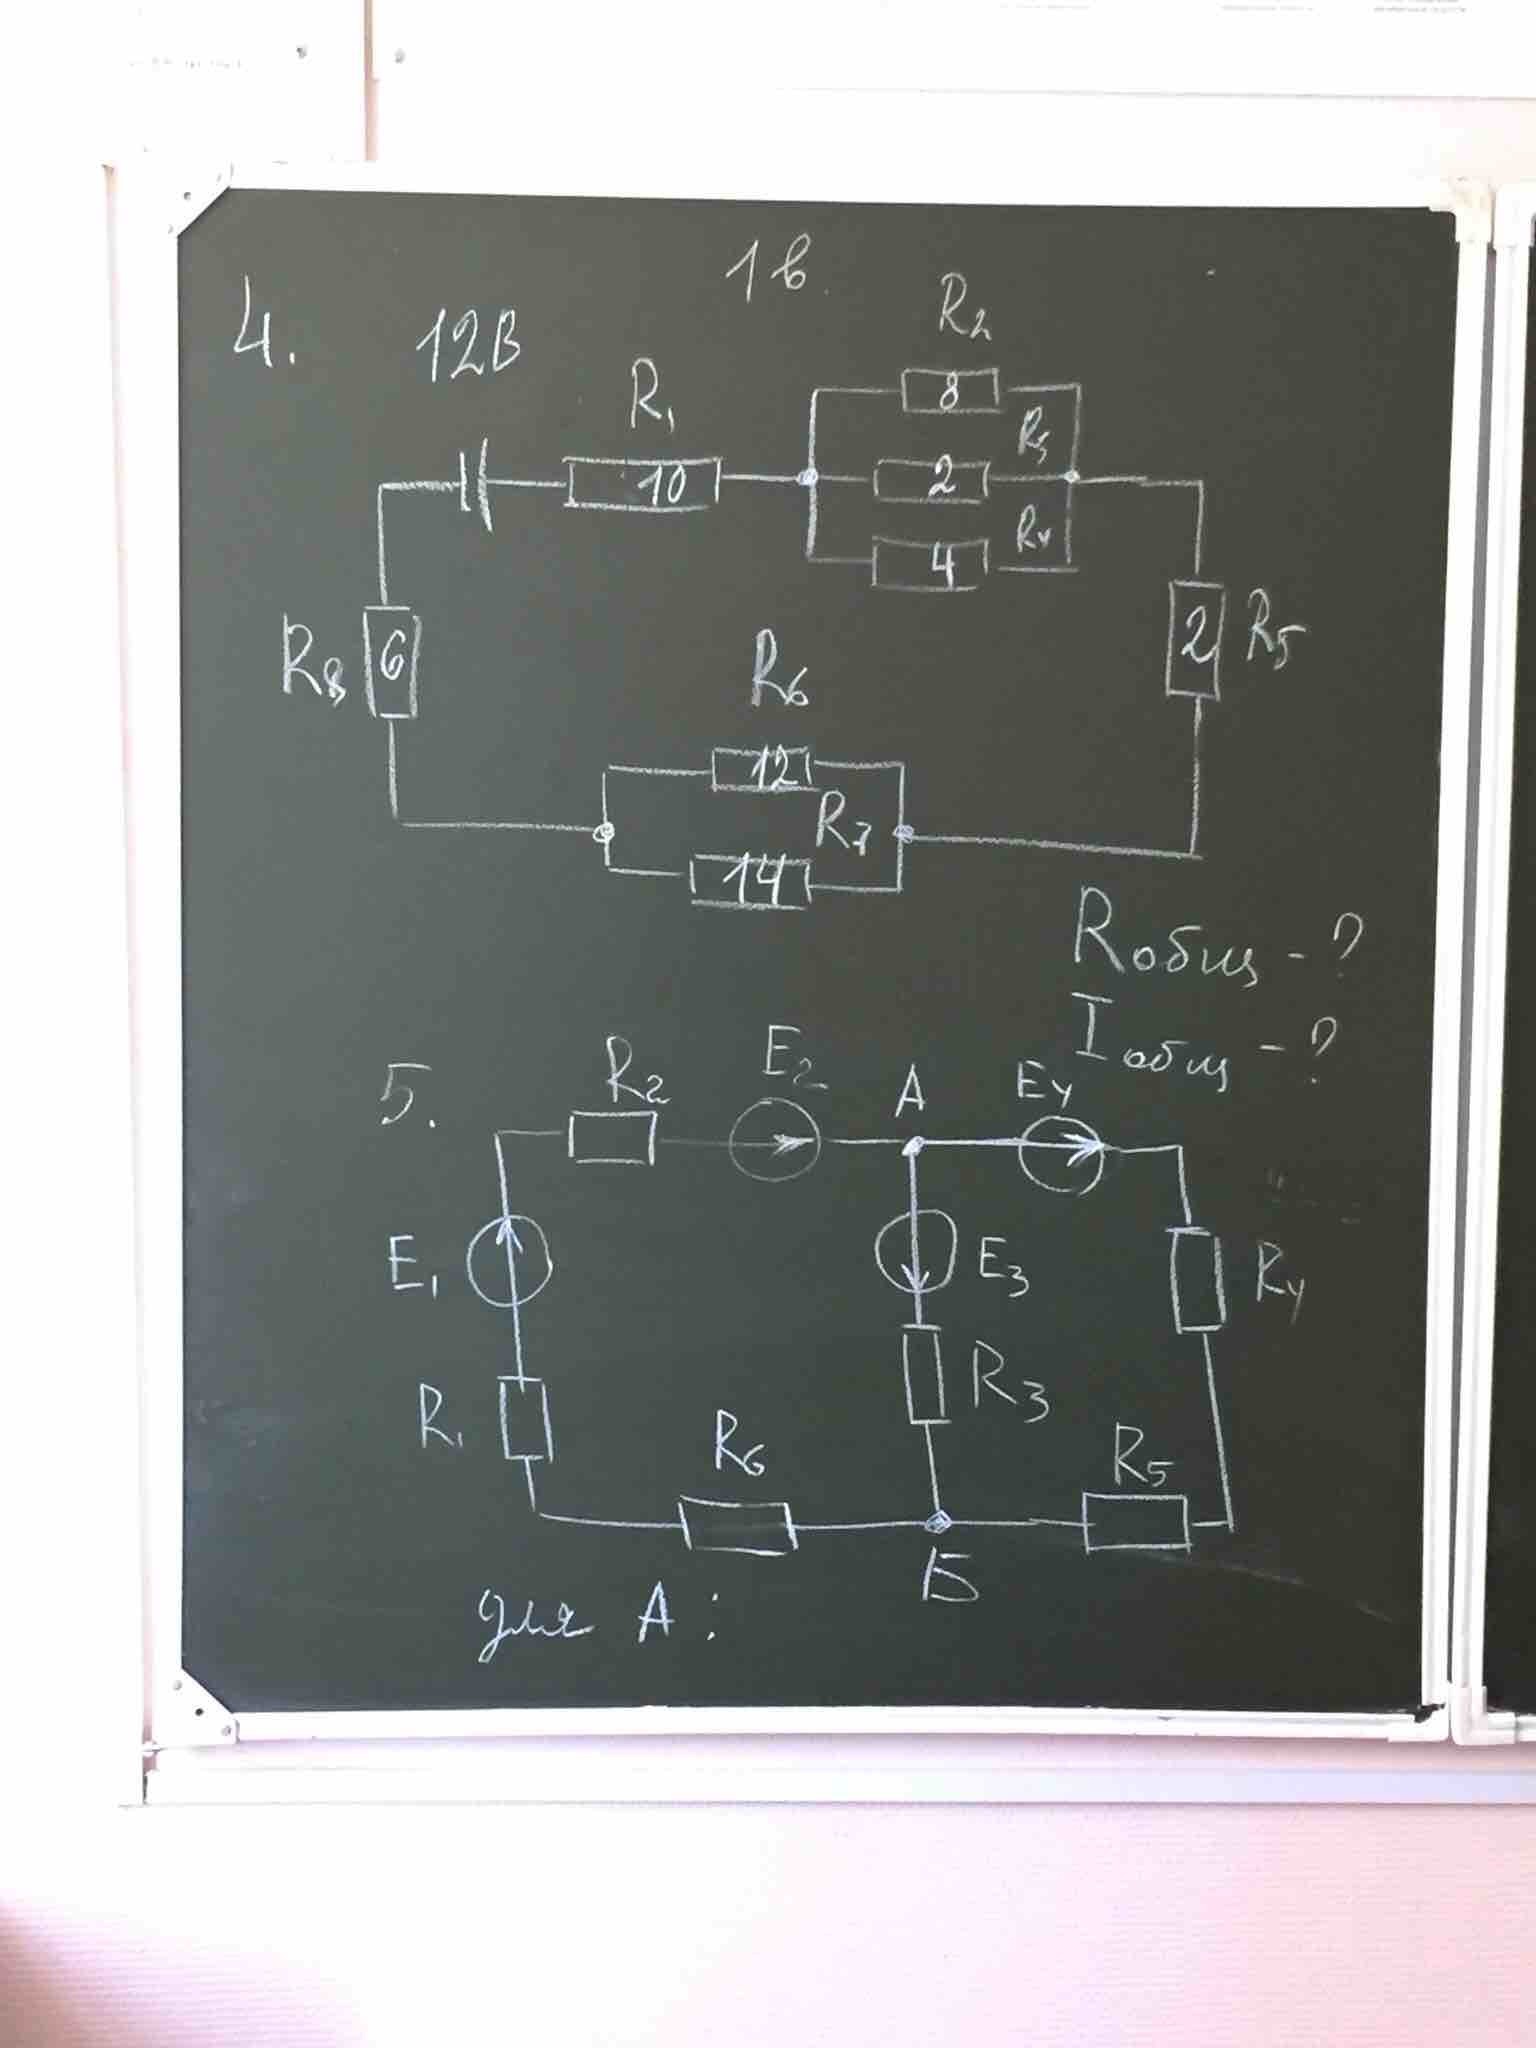 1в.
4. 12В
R₁ R₂
10 8
R₃
2
R₄
4
R₈ 6
2 R₅
R₆
12
R₇
14
Rобщ - ?
Iобщ - ?
5. R₂ E₂ A E₄
E₁ E₃ R₄
R₁ R₃
R₆ R₅
Б
для А: